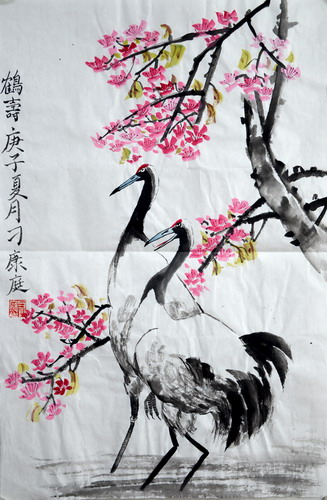 鶴壽庚子夏月刁康庭